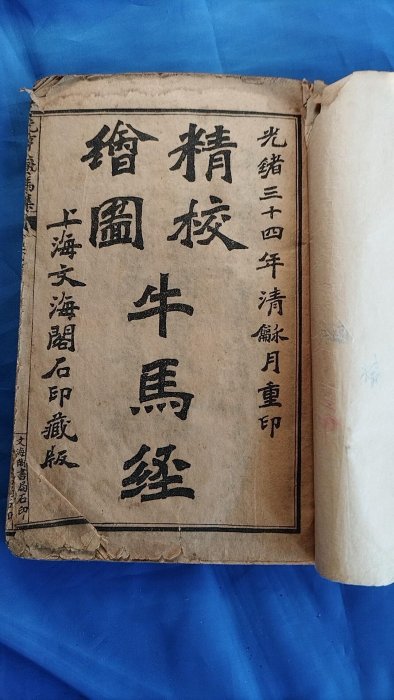 光緒三十四年清龢月重印
精校
繪圖
牛馬經
上海文海閣石印藏版
文海閣書局石印